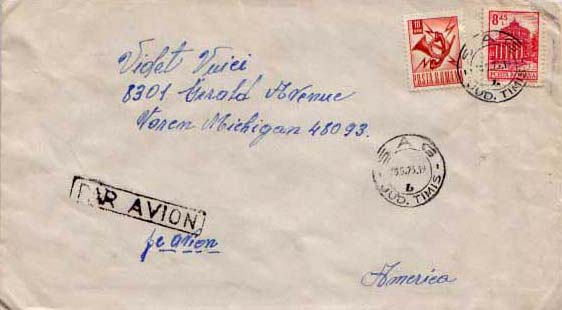 10
POSTA ROMANA
8,45 L
POSTA ROMANA
JUD. TIMIS
Violet Vuici
8301 Gerald Avenue
Waren Michigan 48093.
SAG
b
JUD. TIMIS
PAR AVION
America